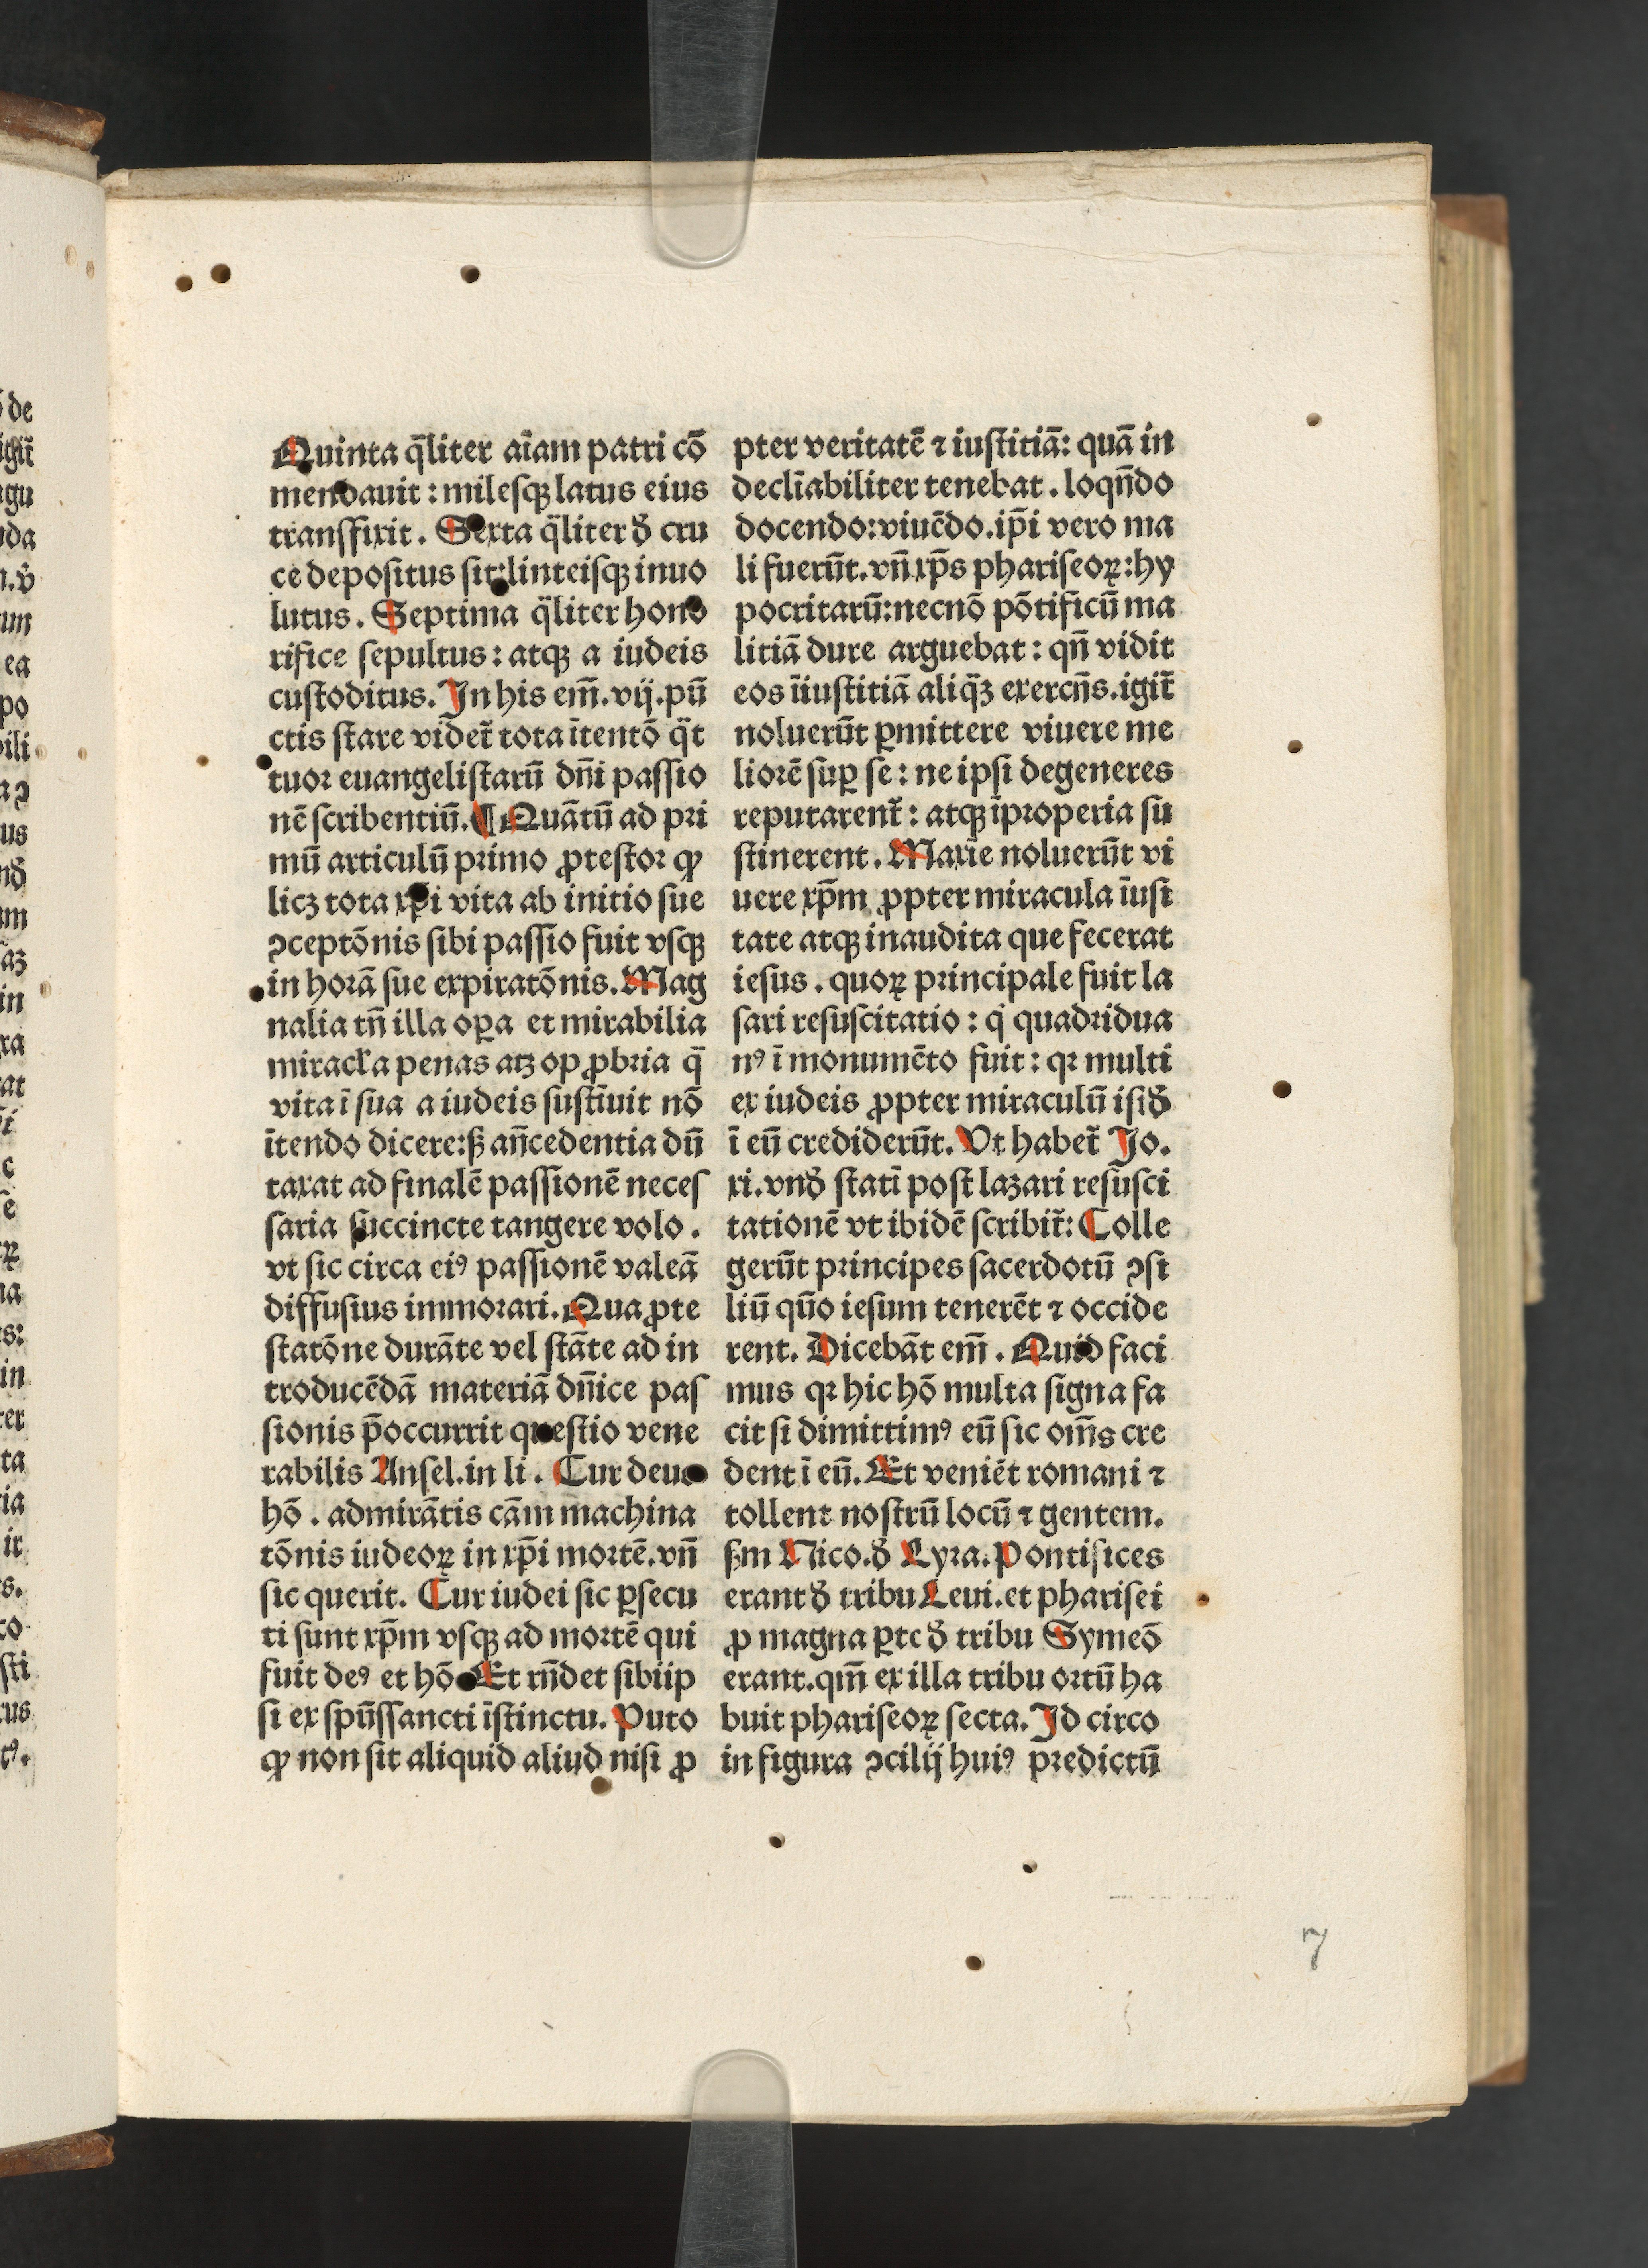 Quinta q̄liter aīam patri cō
mendauit : milesqꝫ latus eius
transfixit. Sexta q̄liter ð cru
ce depositus sit: linteisqꝫ inuo
lutus. Septima q̄liter hono
rifice sepultus : atqꝫ a iudeis
custoditus. In his em̄. vij. pū
ctis stare videt̄ tota ītentō q̄t
tuor euangelistarū dn̄i passio
nē scribentiū. ¶ Quātū ad pri
mū articulū primo ꝓtestor ꝙ
licꝫ tota xp̄i vita ab initio sue
ↄceptōnis sibi passio fuit vsqꝫ
in horā sue expiratōnis. Mag
nalia tn̄ illa oꝑa et mirabilia
miracl̄a penas atꝫ op ꝓbria q̄
vita ī sua a iudeis sustīuit nō
ītendo dicere: sꝫ an̄cedentia dū
taxat ad finalē passionē neces
saria succincte tangere volo.
vt sic circa eiꝰ passionē valeā
diffusius immorari. Qua ꝓte
statōne durāte vel stāte ad in
troducēdā materiā dn̄ice pas
sionis p̄occurrit questio vene
rabilis Ansel. in li. Cur deus
hō. admirātis cām machina
tōnis iudeoꝝ in xp̄i mortē. vn̄
sic querit. Cur iudei sic ꝑsecu
ti sunt xp̄m vsqꝫ ad mortē qui
fuit deꝰ et hō Et rn̄det sibiip
si ex spūssancti īstinctu. Puto
ꝙ non sit aliquid aliud nisi ꝓ
pter veritatē ⁊ iustitiā: quā in
declīabiliter tenebat. loqn̄do
docendo: viuēdo. ip̄i vero ma
li fuerūt. vn̄ xp̄s phariseoꝝ: hy
pocritarū: necnō pōtificū ma
litiā dure arguebat : qn̄ vidit
eos īiustitiā aliq̄ꝫ exercn̄s. igit̄
noluerūt ꝑmittere viuere me
liorē suꝑ se : ne ipsi degeneres
reputarent̄ : atqꝫ īproperia su
stinerent. Maxīe noluerūt vi
uere xp̄m ꝓpter miracula īusi
tate atqꝫ inaudita que fecerat
iesus. quoꝝ principale fuit la
sari resuscitatio : q̇ quadridua
nꝰ ī monumēto fuit : qꝛ multi
ex iudeis ꝓpter miraculū isið
ī eū crediderūt. Vt habet̄ Jo.
xi. vnð statī post lazari resusci
tationē vt ibidē scribit̄: Colle
gerūt principes sacerdotū ↄsi
liū quō iesum tenerēt ⁊ occide
rent. Dicebāt em̄. Quid faci
mus qꝛ hic hō multa signa fa
cit si dimittimꝰ eū sic om̄s cre
dent ī eū. Et veniēt romani ⁊
tollent nostrū locū ⁊ gentem.
sꝫm Nico. ð Lyra. Pontifices
erant ð tribu Leui. et pharisei
ꝓ magna ꝑte ð tribu Symeō
erant. qm̄ ex illa tribu ortū ha
buit phariseoꝝ secta. Id circo
in figura ↄcilij huiꝰ predictū
7